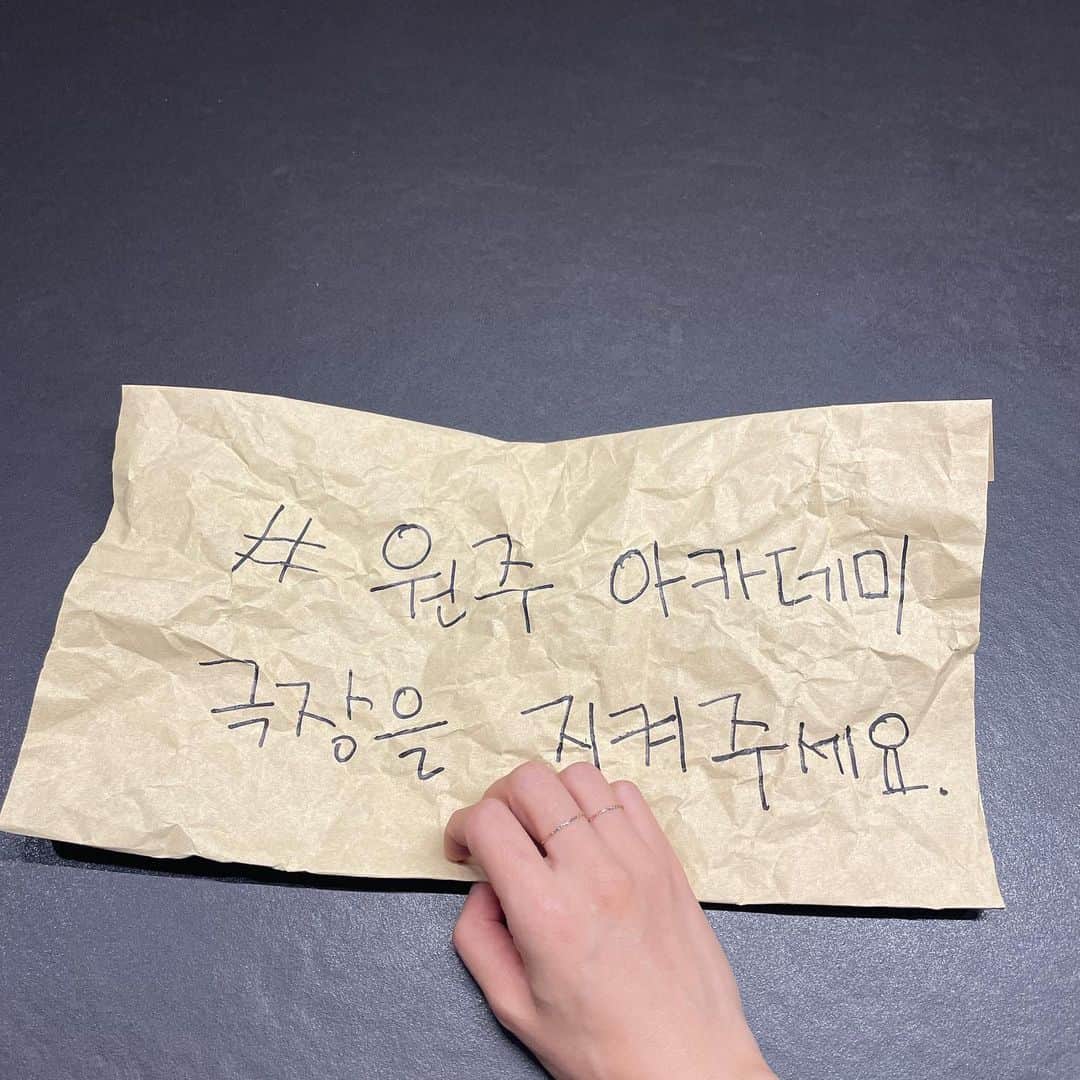 # 원주 아카데미
극장을 지켜주세요.